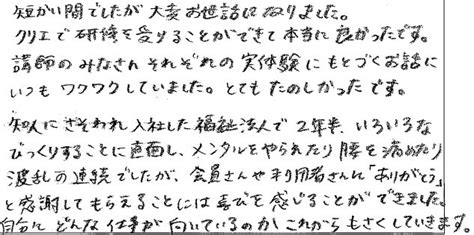 短かい間でしたが大変お世話になりました。
クリエで研修を受けることができて本当に良かったです。
講師のみなさんそれぞれの実体験にもとづくお話に
いつもワクワクしていました。とてもたのしかったです。
知人にさそわれ入社した福祉法人で2年半、いろいろな
びっくりすることに直面し、メンタルをやられたり腰を痛めたり
波乱の連続でしたが、会員さんや利用者さんに「ありがとう」
と感謝してもらえることには喜びを感じることができました。
自分にどんな仕事が向いているのかこれからもさくしていきます。